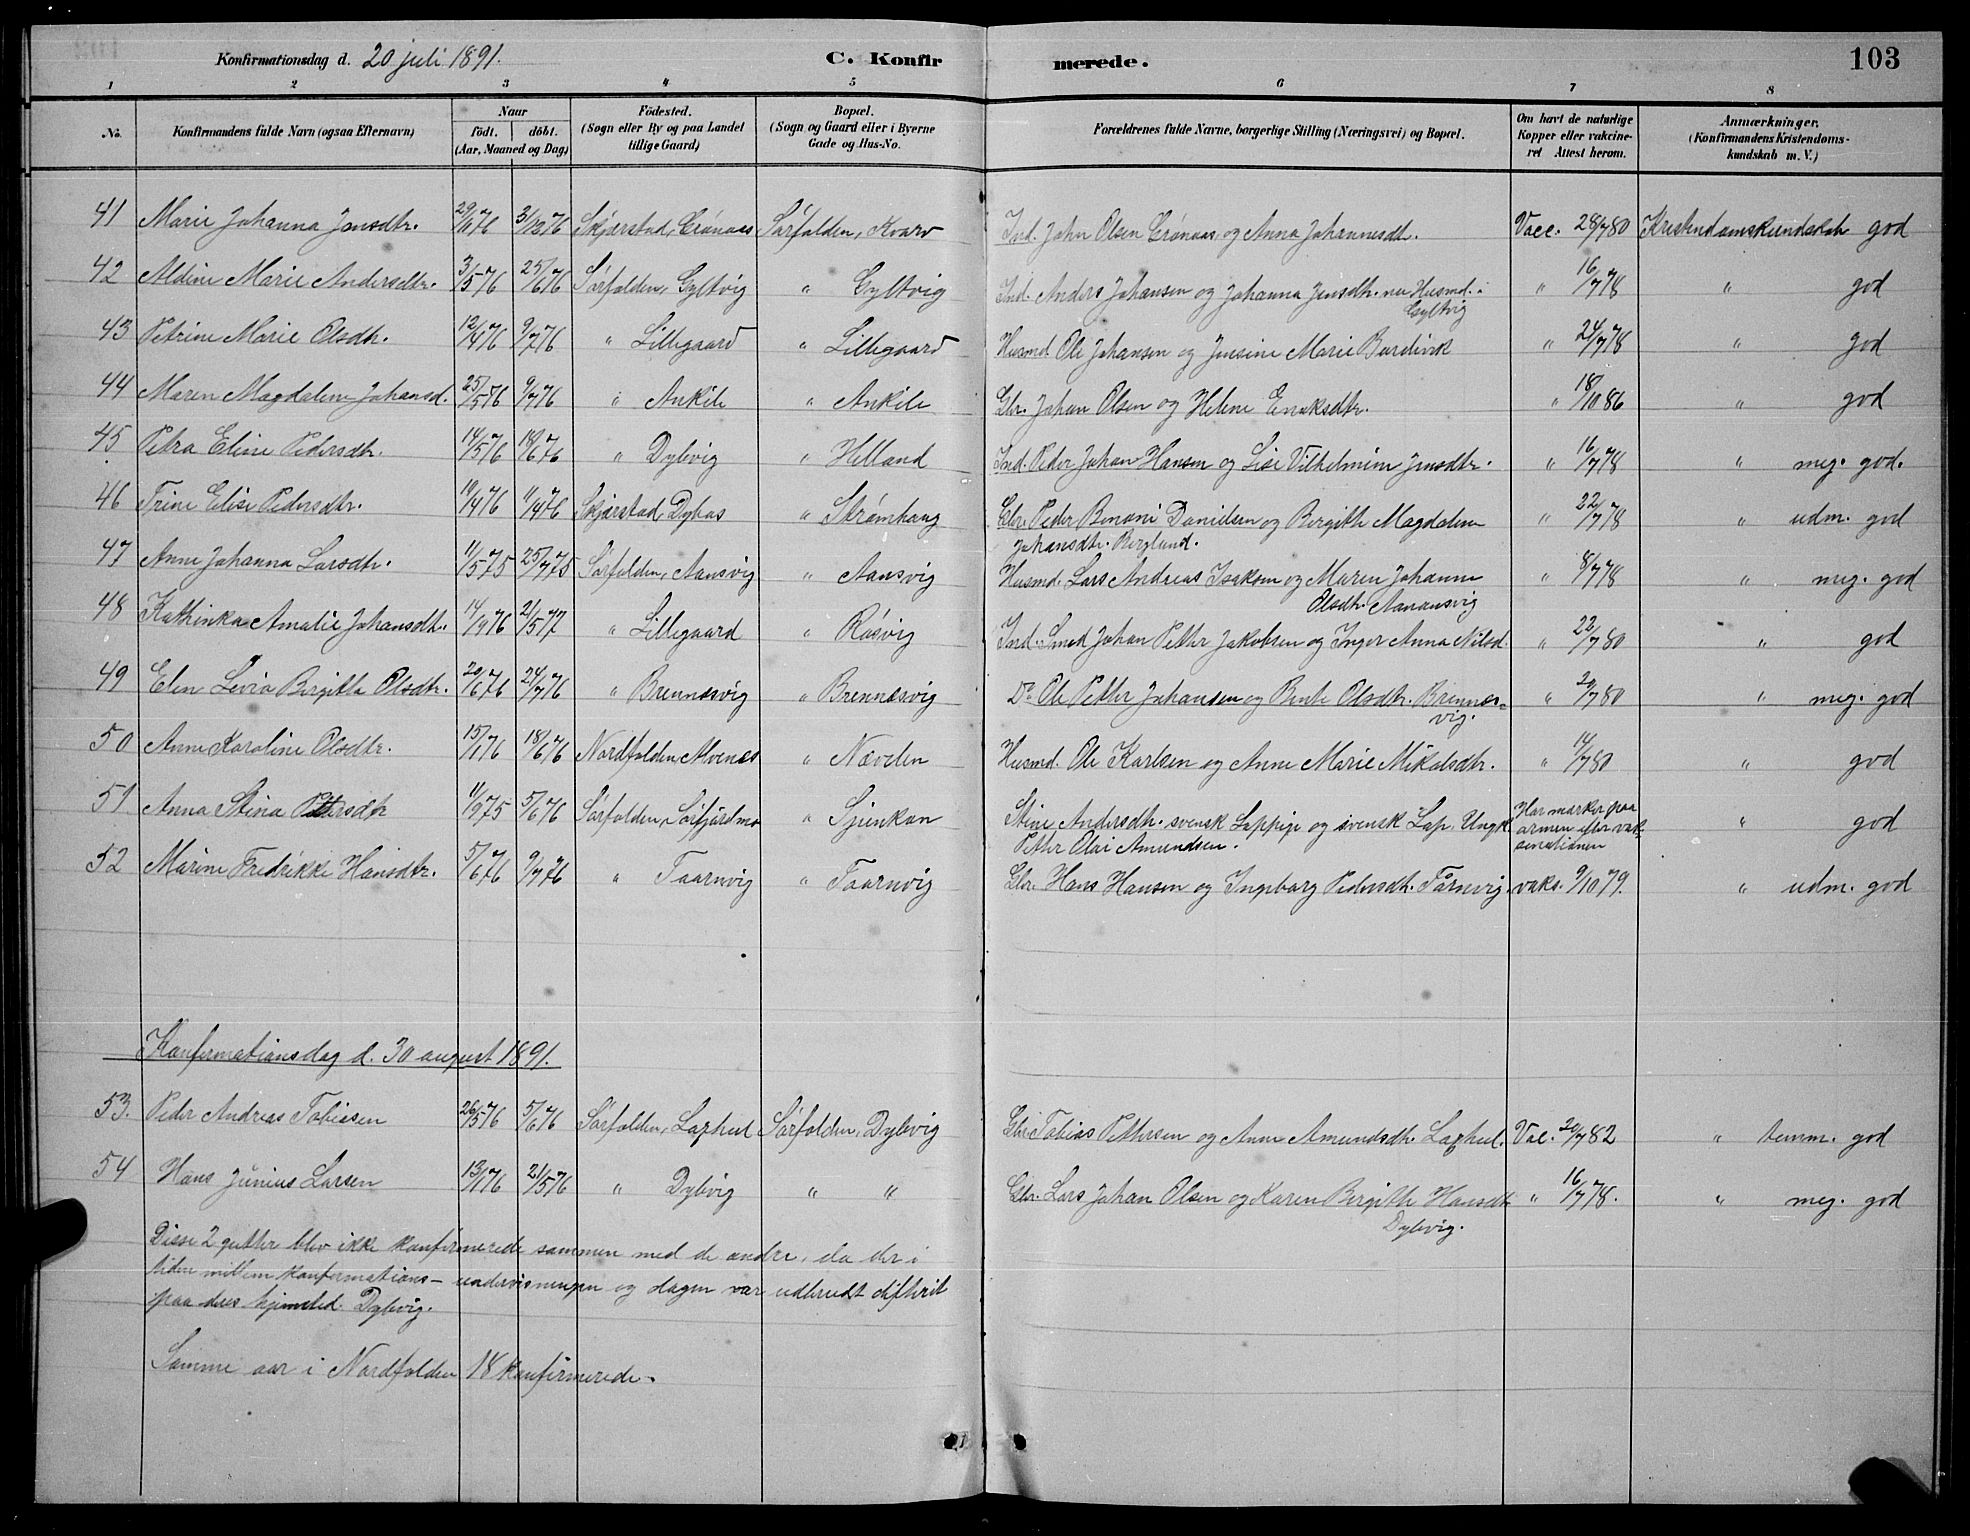 Konfirmationsdag d. 20 juli 1891. C. Konfirmerede. 103
1 2 3 4 5 6 7 8
No. Konfirmandens fulde Navn (ogsaa Efternavn) Naar födt. döbt. (Aar, Maaned og Dag) Födested. (Sogn eller By og paa Landet tillige Gaard) Bopæl. (Sogn og Gaard eller i Byerne Gade og Hus-No. Forældrenes fulde Navne, borgerlige Stilling (Næringsvei) og Bopæl. Om havt de naturlige Kopper eller vakcineret Attest herom. Anmærkninger, (Konfirmandens Kristendomskundskab m. V.)
41 Marie Johanna Jensdtr. 29/1076 31/1276 Skjærstad, Grønaas Sørfolden, Kvarv Ind. John Olsen Grønaas og Anna Johannesdt. Vacc. 28/780 Kristendomskundskab god
42 Aldine Marie Andersdtr. 3/576 25/676 Sørfolden, Gyltvig " Gyltvig Ind. Anders Johansen og Johanna Jensdtr. nu Husmd. i Gyltvig " 16/778 " god
43 Petrine Marie Olsdtr. 12/476 9/776 " Lillegaard " Lillegaard Husmd Ole Johansen og Jensine Marie Burdivik " 24/778 " god
44 Maren Magdalene Johansd. 25/576 9/776 " Ankile " Ankile Gbr. Johan Olsen og Helene Enoksdtr. " 18/1086 " god
45 Petra Eline Pedersdtr. 14/576 18/676 " Dybvig " Helland Ind. Peder Johan Hansen og Lise Vilhelmine Jensdtr. " 16/778 " meg. god.
46 Trine Elise Pedersdtr. 19/476 11/476 Skjærstad, Dybas " Strømhaug Gbr. Peder Benoni Danielsen og Bergithe Magdalene Johansdtr. Berglund. " 22/778 " udm. god
47 Anne Johanna Larsdtr. 11/575 25/775 Sørfolden, Aansvig " Aansvig Husmd. Lars Andreas Isaksen og Maren Johanna Olsdtr. Aanansvig " 8/778 " meg. god
48 Kathinka Amalie Johansdtr. 14/976 21/577 " Lillegaard " Røsvig Ind. Smed Johan Petter Jakobsen og Inger Anna Nilsd. " 22/780 " god
49 Elen Levia Birgitta Olsdtr. 20/676 24/776 " Brennesvig " Brennesvig Do Ole Petter Johansen og Berte Olsdtr. Brennesvig. " 20/780 " meg. god
50 Anne Karoline Olsdtr. 15/176 18/676 Nordfolden, Alvenes " Nevelen Husmd. Ole Karlsen og Anne Marie Mikalsdtr. " 14/780 " god
51 Anna Stina Pettersdtr 11/975 5/676 Sørfolden, Sørfjordmo " Sjunkan Stine Andersdtr. svensk Lappige og svensk Lap. Ungk. Petter Olai Amundsen. Har marker paa armen efter vaksinationen " god
52 Marine Fredrikke Hansdtr. 5/676 9/776 " Taarnvig " Taarnvig Gbr. Hans Hansen og Ingeborg Pedersdtr. Tårnvig. vaks. 9/1079. " udm. god
Konfirmationsdag d. 30 august 1891.
53. Peder Andreas Tobiesen 26/576 5/676 Sørfolden, Laghul Sørfolden, Dybvig Gbr. Tobias Pettersen og Anne Amundsdtr. Laghul. Vac. 20/782 " temm. god
54 Hans Junius Larsen 13/176 21/576 " Dybvig " " Gbr. Lars Johan Olsen og Karen Birgithe Hansdtr Dybvig. " 16/778. " meg. god
Disse 2 gutter blev ikke konfirmerede sammen med de andre, da der i
tiden mellem konfirmations-undervisningen og dagen var udbrudt difterit
paa deres hjemsted Dybvig.
Samme aar i Nordfolden 18 konfirmerede.